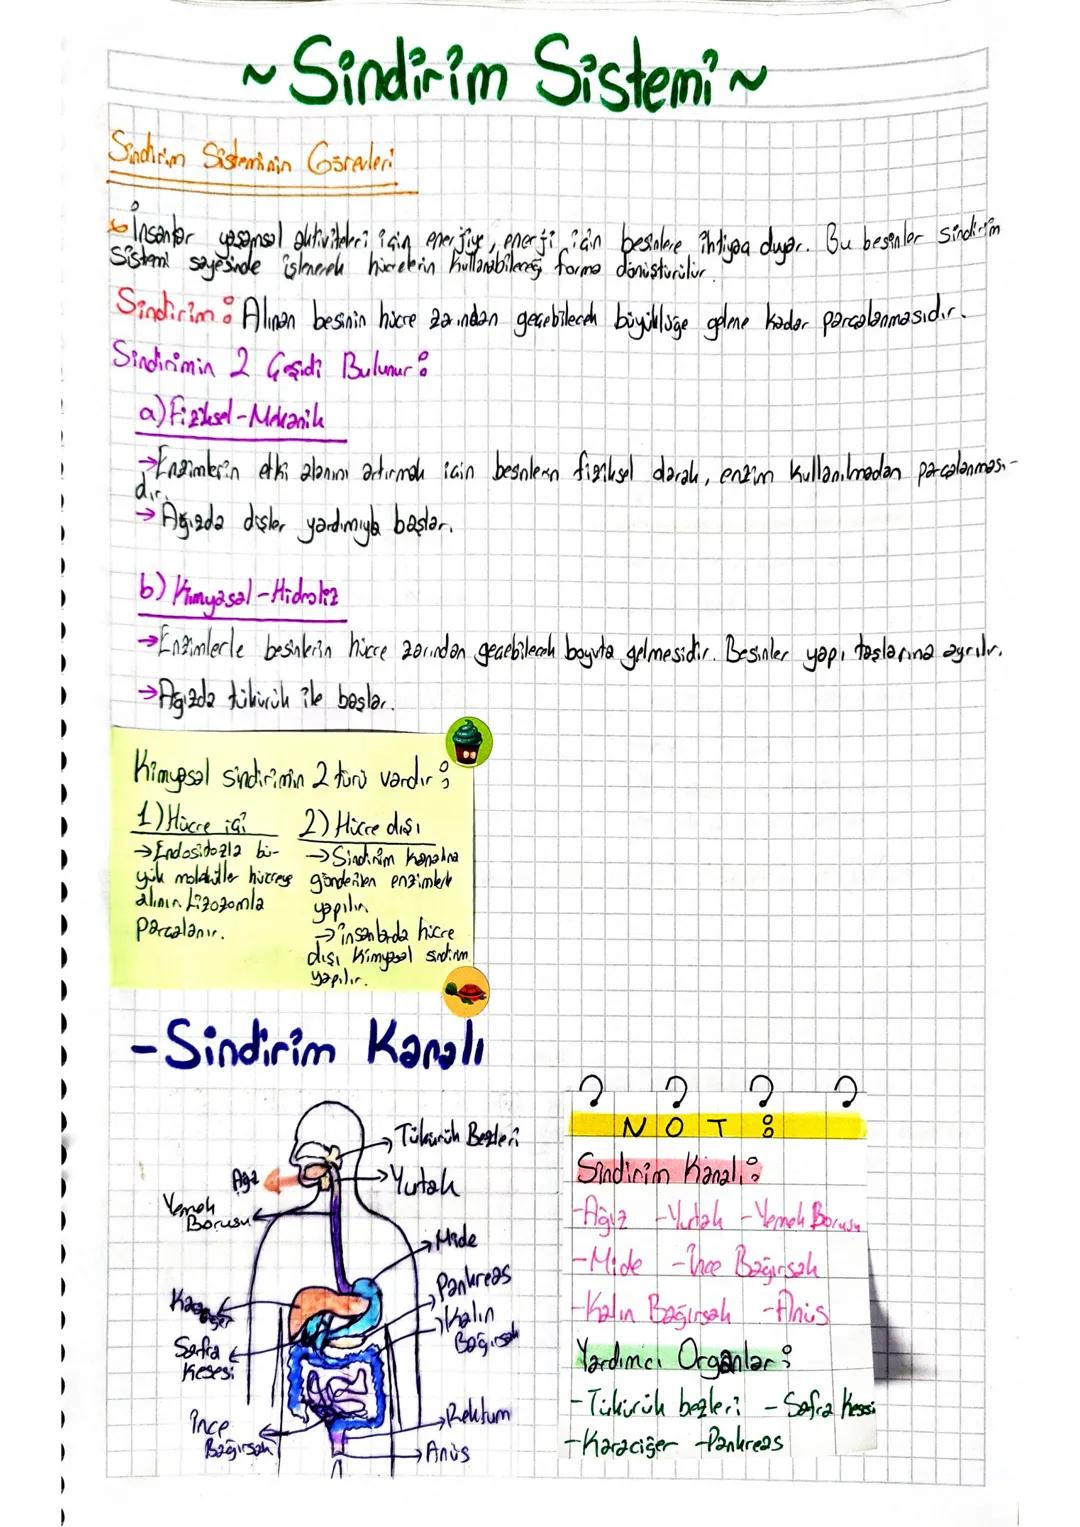 ~ Sindirim Sistemi ~
Sindirim Sisteminin Görevleri
İnsanlar yaşamsal aktiviteleri için enerjiye, enerji için besinlere ihtiyaç duyar. Bu besinler sindirim
Sistemi sayesinde işlenerek hücrelerin kullanabileceği forma dönüştürülür.
Sindirim: Alınan besinin hücre zarından geçebilecek büyüklüğe gelene kadar parçalanmasıdır.
Sindirimin 2 Çeşidi Bulunur:
a) Fiziksel-Mekanik
→Enzimlerin etki alanını artırmak için besinlerin fiziksel olarak, enzim kullanılmadan parçalanması-
dır.
→Ağızda dişler yardımıyla başlar.
b) Kimyasal-Hidroliz
→Enzimlerle besinlerin hücre zarından geçebilecek boyuta gelmesidir. Besinler yapı taşlarına ayrılır.
→Ağızda tükürük ile başlar.
Kimyasal sindirimin 2 türü vardır;
1) Hücre içi
→Endositozla bü-
yük moleküller hücreye
alınır. Lizozomla
parçalanır.
2) Hücre dışı
→Sindirim kanalına
gönderilen enzimlerle
yapılır.
→insanlarda hücre
dışı kimyasal sindirim
yapılır.
-Sindirim Kanalı
Tükürük Bezleri
Ağız
Yutak
Yemek
Borusu
Mide
Pankreas
Kalın
Bağırsak
Karaciğer
Safra
Kesesi
İnce
Bağırsak
Rektum
Anüs
NOT:
Sindirim Kanalı:
-Ağız -Yutak -Yemek Borusu
-Mide -İnce Bağırsak
-Kalın Bağırsak -Anüs
Yardımcı Organlar:
-Tükürük bezleri -Safra Kesesi
-Karaciğer -Pankreas